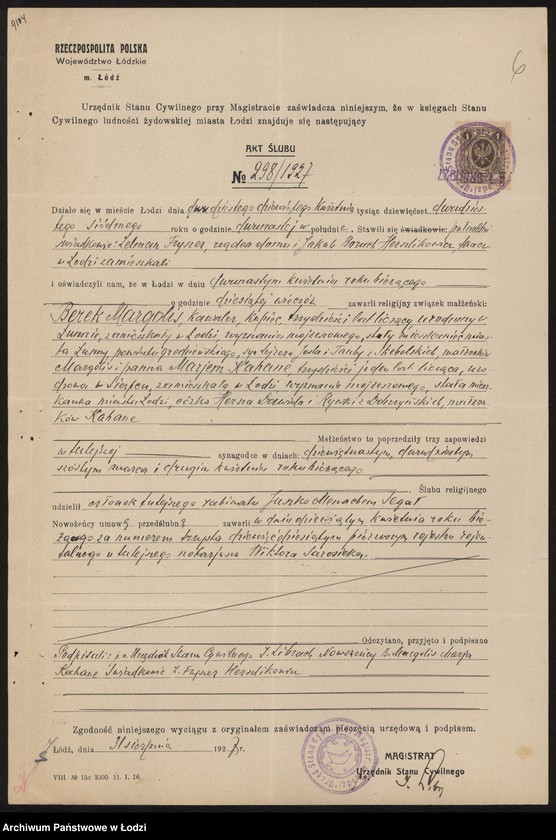 9104
6
RZECZPOSPOLITA POLSKA
Województwo Łódzkie
m. Łódź
Urzędnik Stanu Cywilnego przy Magistracie zaświadcza niniejszym, że w księgach Stanu
Cywilnego ludności żydowskiej miasta Łodzi znajduje się następujący
AKT ŚLUBU
№ 298/1927
Działo się w mieście Łodzi dnia dwudziestego dziewiątego kwietnia tysiąc dziewięćset dwudzies-
tego siódmego roku o godzinie dwunastej w południe. Stawili się świadkowie: pełnoletni
świadkowie Zelman Fryzer, rządca domu i Jakób Boruch Herszlikowicz, tkacz
w Łodzi zamieszkali
i oświadczyli nam, że w Łodzi w dniu dwunastym kwietnia roku bieżącego
o godzinie dziesiątej wieczór zawarli religijny związek małżeński:
Berek Margolis, kawaler, kupiec, trzydzieści lat liczący urodzony w
Łunnie, zamieszkały w Łodzi, wyznania mojżeszowego, stały mieszkaniec mias-
ta Łunny, powiatu grodzieńskiego, syn Lejzera Josla i Tauby z małżonków
Margolis i panna Marjem Kahane, trzydzieści jeden lat licząca, uro-
dzona w Sierpcu, zamieszkała w Łodzi wyznania mojżeszowego, stała miesz-
kanka miasta Łodzi, córka Hersza Dawida i Rywki z Dobrzyńskich, małżon-
ków Kahane
Małżeństwo to poprzedziły trzy zapowiedzi
w tutejszej synagodze w dniach: dziewiętnastym, dwudziestym
szóstym marca i drugim kwietnia roku bieżącego
Ślubu religijnego
udzielił członek tutejszego rabinatu Juszko Menachem Segał
Nowożeńcy umowę przedślubną zawarli w dniu dziesiątym kwietnia roku bie-
żącego za numerem trzysta dziewięćdziesiątym pierwszym rejestru rejen-
talnego u tutejszego notarjusza Wiktora
Odczytano, przyjęto i podpisano
Podpisali: Urzędnik Stanu Cywilnego J. Librach Nowożeńcy B. Margolis Marja
Kahane Świadkowie Z. Fryzer Herszlikowicz
Zgodność niniejszego wyciągu z oryginałem zaświadczam pieczęcią urzędową i podpisem.
Łódź, dnia 31 sierpnia 1927 r.
MAGISTRAT
Urzędnik Stanu Cywilnego
VIII № 15c 3000. 11. I. 26.
Archiwum Państwowe w Łodzi